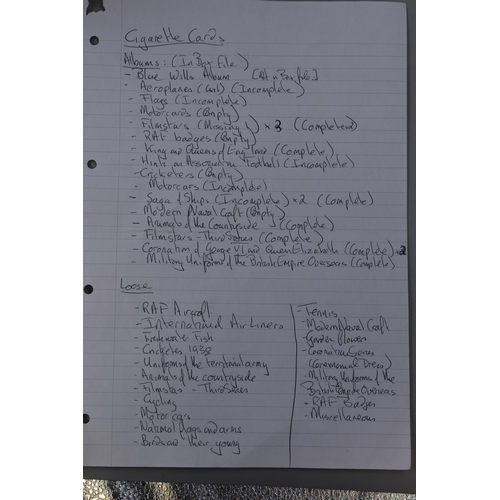 Cigarette Cards
Albums: (In Big File)
- Blue Wills Album
- Aeroplanes (Incomplete)
- Flags (Incomplete)
- Motorcards (Empty)
- Filmstars (Missing 1) x 3 (Completed)
- RAF badges (Empty)
- King and Queens of England (Complete)
- Hints on Association Football (Incomplete)
- Cricketers (Empty)
- Motorcars (Incomplete)
- Saga of Ships (Incomplete) x 2 (Complete)
- Modern Naval Craft (Empty)
- Animals of the Countryside (Complete)
- Filmstars - Third Series (Complete)
- Coronation of George VI and Queen Elizabeth (Complete) x 2
- Military Uniforms of the British Empire Overseas (Complete)
Loose
- RAF Aircraft
- International Air Liners
- Freshwater Fish
- Cricketers 1938
- Uniforms of the territorial army
- Animals of the countryside
- Filmstars - Third Series
- Cycling
- Motor cars
- National flags and arms
- Birds and their young
- Tennis
- Modern Naval Craft
- Garden flowers
- Coronation Series
(Ceremonial Dress)
- Military Uniforms of the
British Empire Overseas
- RAF Badges
- Miscellaneous